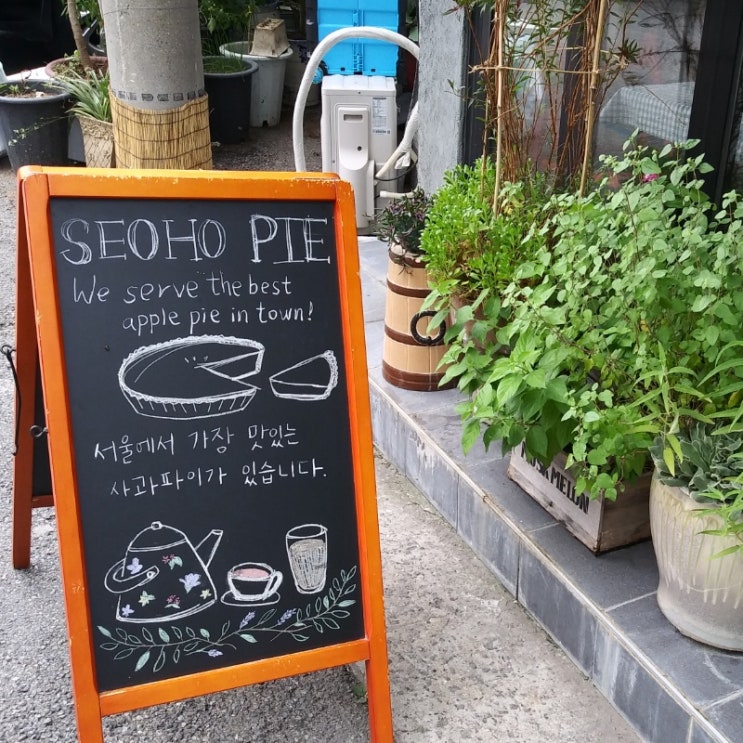 SEOHO PIE
We serve the best
apple pie in town!
서울에서 가장 맛있는
사과파이가 있습니다.